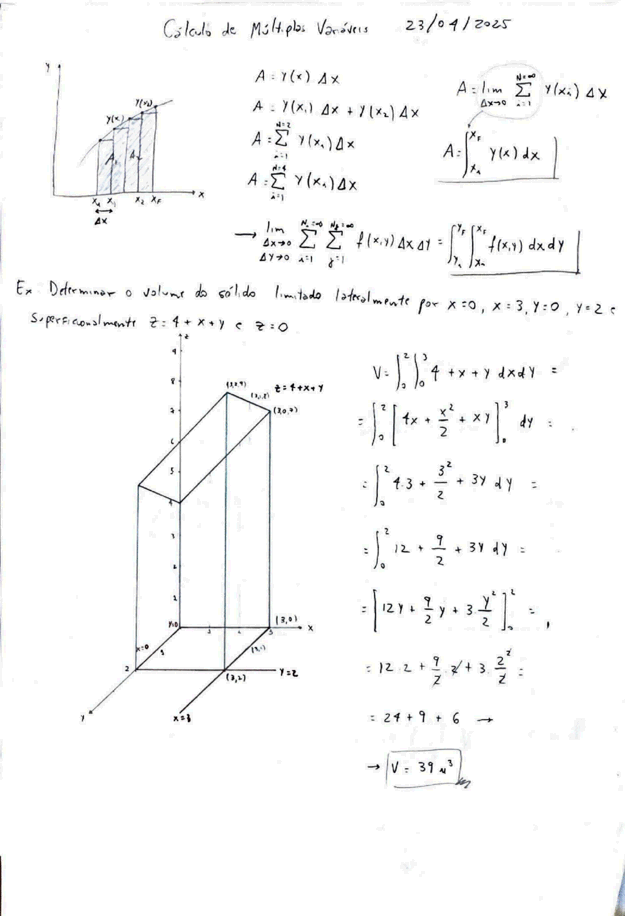 Cálculo de Múltiplas Variáveis 23/04/2025
A = y(x) Δx
A = y(x₁) Δx + y(x₂) Δx
A = ∑_{i=1}^{N=2} y(xᵢ) Δx
A = ∑_{i=1}^{N=4} y(xᵢ) Δx
A = lim_{Δx→0} ∑_{i=1}^{N=∞} y(xᵢ) Δx
A = ∫_{xᵢ}^{x_F} y(x) dx
y
y(x₁)
y(x₂)
A₁ A₂
xᵢ x₁ x₂ x_F x
Δx
→ lim_{Δx→0 Δy→0} ∑_{i=1}^{Nᵢ=∞} ∑_{j=1}^{Nj=∞} f(x,y) Δx Δy = ∫_{yᵢ}^{y_F} ∫_{xᵢ}^{x_F} f(x,y) dx dy
Ex: Determinar o volume do sólido limitado lateralmente por x=0, x=3, y=0, y=2 e
Superficionalmente z = 4 + x + y e z = 0
z
9
8
7
6
5
4
3
2
1
z = 4+x+y
y=0
(3,0)
x
x=0
1
2
(3,2)
y=2
y
x=3
V = ∫₀² ∫₀³ 4 + x + y dx dy =
= ∫₀² [4x + x²/2 + xy]₀³ dy =
= ∫₀² 4.3 + 3²/2 + 3y dy =
= ∫₀² 12 + 9/2 + 3y dy =
= [12y + 9/2 y + 3 y²/2]₀² =
= 12.2 + 9/2 .2 + 3. 2²/2 =
= 24 + 9 + 6 →
→ V = 39 u³